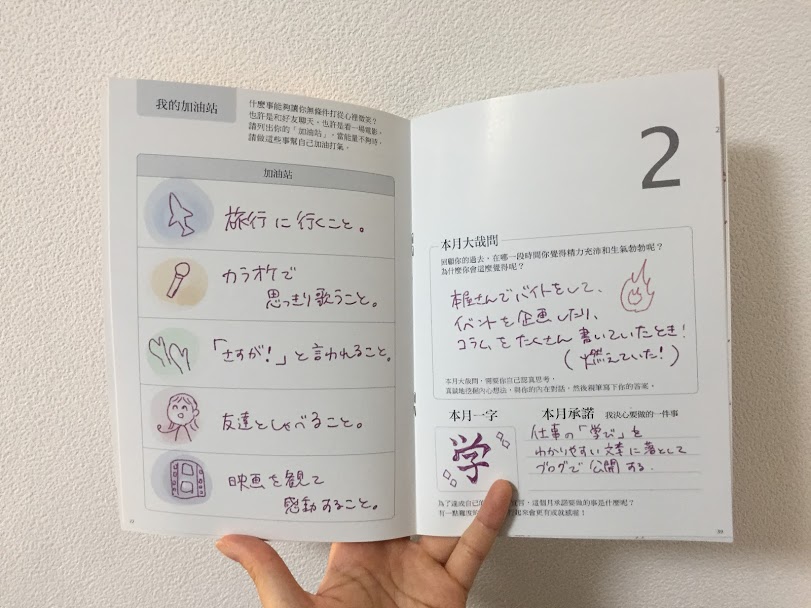 我的加油站
什麼事能夠讓你無條件打從心裡微笑？
也許是和好友聊天，也許是看一場電影，
請列出你的「加油站」，當能量不夠時，
請做這些事幫自己加油打氣。
加油站
旅行に行くこと。
カラオケで
思っきり歌うこと。
「さすが！」と言われること。
友達としゃべること。
映画を観て
感動すること。
2
本月大哉問
回顧你的過去，在哪一段時間你覺得精力充沛和生氣勃勃呢？
為什麼你會這麼覺得呢？
本屋さんでバイトをして、
イベントを企画したり、
コラムをたくさん書いていたとき！
（燃えていた！）
本月大哉問，需要你自己認真思考，
真誠地挖掘內心想法，與你的內在對話，然後親筆寫下你的答案。
本月一字
学
本月承諾 我決心要做的一件事
仕事の「学び」を
わかりやすい文章に落として
ブログで公開する。
為了達成自己的
，這個月承諾要做的事是什麼呢？
有一點難度
起來會更有成就感喔！